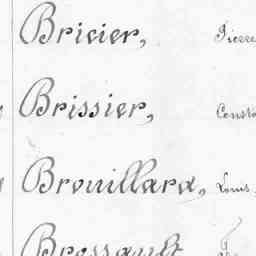 Bricier, Pierre
Brissier, Const
Brouillard, Louis,
Brossault